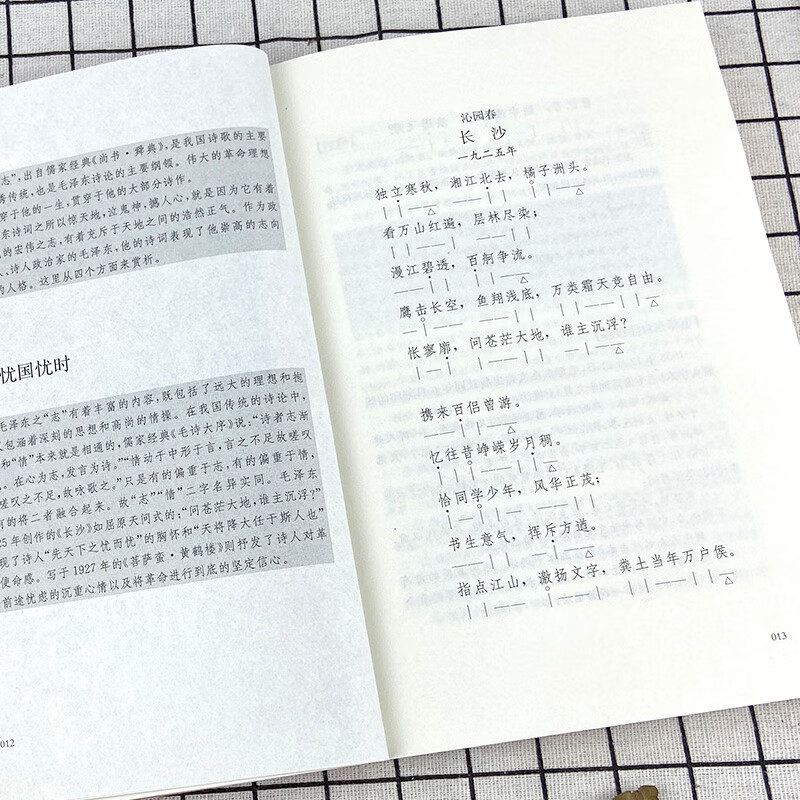 志”，出自儒家经典《尚书·舜典》，是我国诗歌的主要
秀传统，也是毛泽东诗论的主要纲领。伟大的革命理想
穿于他的一生，贯穿于他的大部分诗作。
东诗词之所以惊天地，泣鬼神，撼人心，就是因为它有着
的宏伟之志，有着充斥于天地之间的浩然正气。作为政
、诗人政治家的毛泽东，他的诗词表现了他崇高的志向
的人格。这里从四个方面来赏析。
忧国忧时
毛泽东之“志”有着丰富的内容，既包括了远大的理想和抱
又包涵着深刻的思想和高尚的情操。在我国传统的诗论中，
和“情”本来就是相通的，儒家经典《毛诗大序》说：“诗者志
。在心为志，发言为诗。”“情动于中形于言，言之不足故嗟叹
嗟叹之不足，故咏歌之。”只是有的偏重于志，有的偏重于情，
有的将二者融合起来。故“志”“情”二字名异实同。毛泽东
25年创作的《长沙》如屈原天问式的：“问苍茫大地，谁主沉浮？”
现了诗人“先天下之忧而忧”的胸怀和“天将降大任于斯人也”
使命感。写于1927年的《菩萨蛮·黄鹤楼》则抒发了诗人对革
前途忧虑的沉重心情以及将革命进行到底的坚定信心。
012
沁园春
长 沙
一九二五年
独立寒秋，湘江北去，橘子洲头。
看万山红遍，层林尽染；
漫江碧透，百舸争流。
鹰击长空，鱼翔浅底，万类霜天竞自由。
怅寥廓，问苍茫大地，谁主沉浮？
携来百侣曾游。
忆往昔峥嵘岁月稠。
恰同学少年，风华正茂；
书生意气，挥斥方遒。
指点江山，激扬文字，粪土当年万户侯。
013